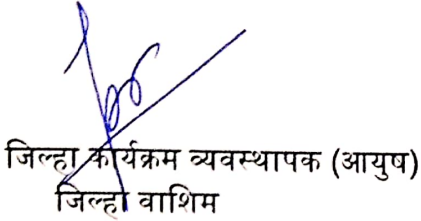 जिल्हा कार्यक्रम व्यवस्थापक (आयुष)
जिल्हा वाशिम